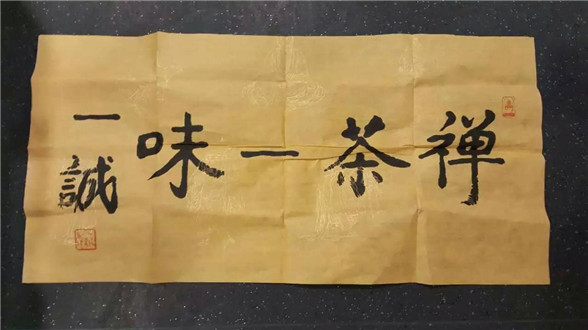 禅茶一味
一誠